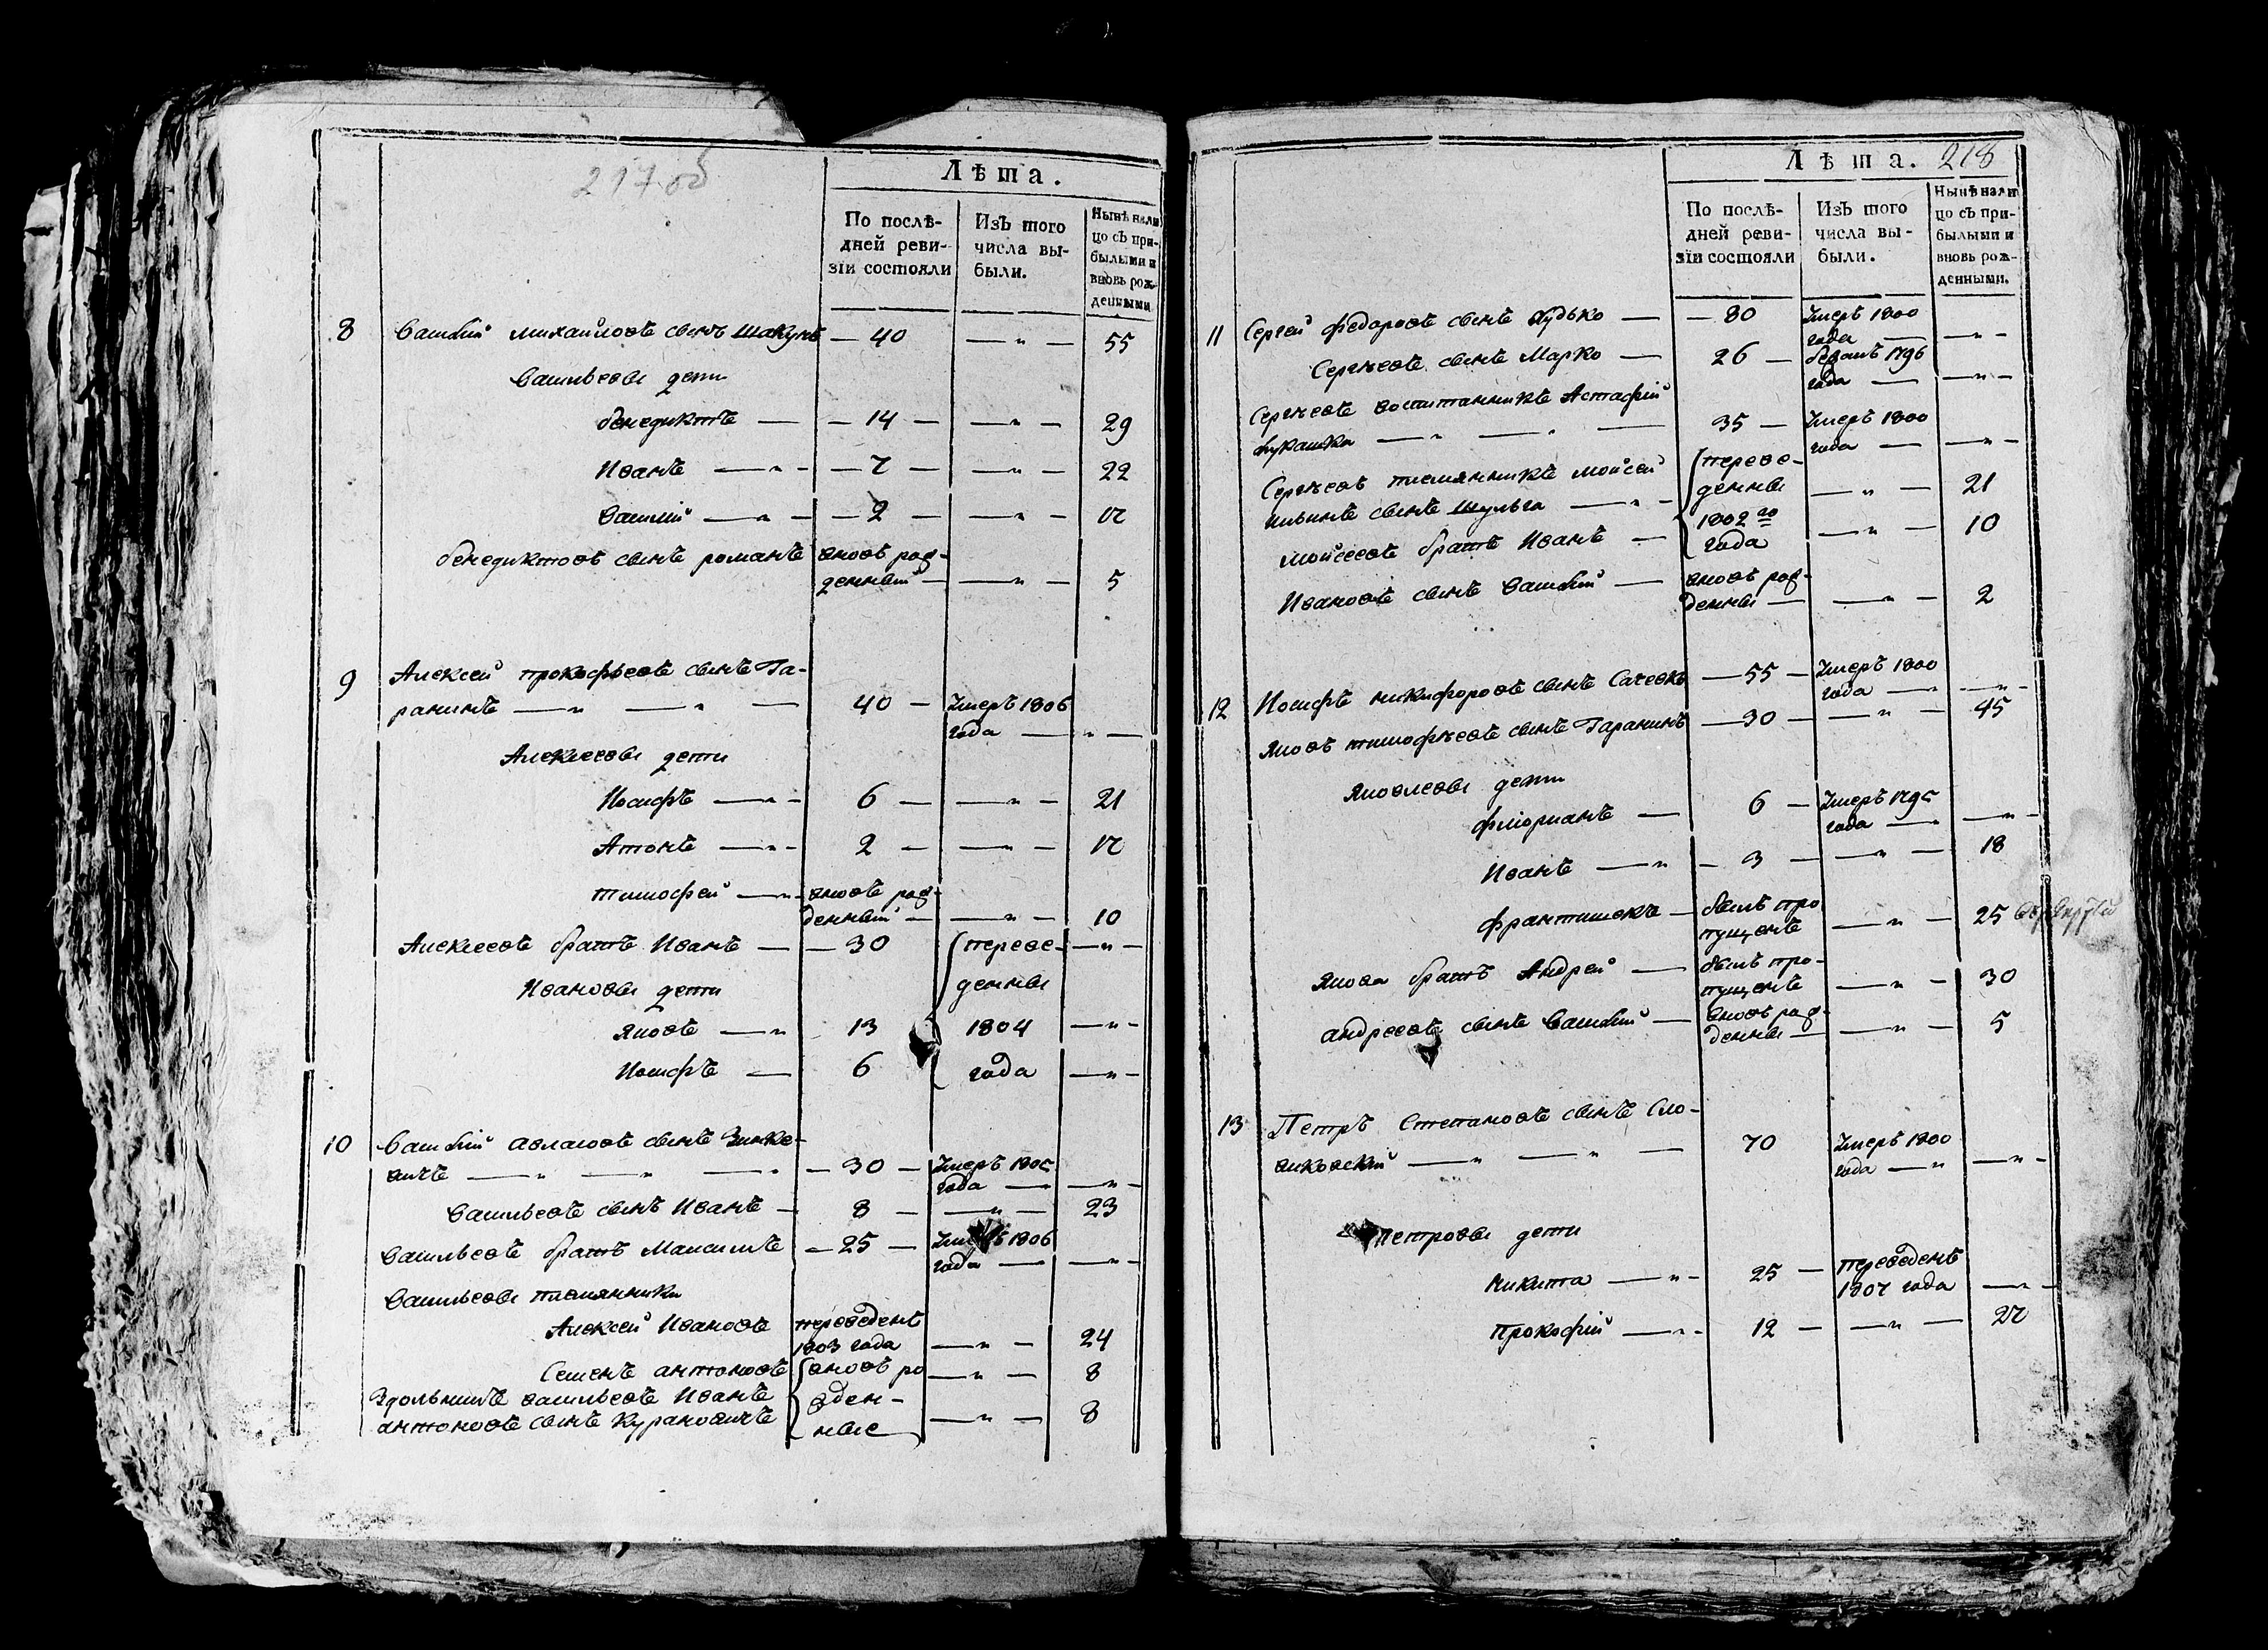 217 об
Лѣта.
По послѣ-
дней реви-
зіи состояли
Изъ того
числа вы-
были.
Нынѣ нали
цо съ при-
былыми и
вновь рож-
денными
8 Василій михайловъ сынъ шакунъ — 40 — — „ — 55
Васильевы дети
бенедиктъ — — 14 — — „ — 29
Иванъ — „ — — 7 — — „ — 22
Василій — „ — — 2 — — „ — 17
бенедиктовъ сынъ романъ вновь рож-
денный — — „ — 5
9 Алексей прокофьевъ сынъ Га-
ранинъ — „ — „ — 40 — Умеръ 1806
года — „ —
Алексеевы дети
Иосифъ — „ — 6 — — „ — 21
Атонъ — „ — 2 — — „ — 17
тимофей — „ — вновь рож-
денный — — „ — 10
Алексеевъ братъ Иванъ — — 30 переве- — „ —
Ивановы дети денны
Яковъ — „ 13 1804 — „ —
Иосифъ — 6 года — „ —
10 Василій авласовъ сынъ Зинке-
вичъ — „ — „ — „ — 30 — Умеръ 1805
года — — „ —
Васильевъ сынъ Иванъ — 8 — — „ — 23
Васильевъ братъ Максимъ — 25 — Умеръ 1806
года — — „ —
Васильевы племянники
Алексей Ивановъ переведенъ
1803 года — „ — 24
Семенъ антоновъ вновь ро — „ — 8
Здольнимъ васильевъ Иванъ жден-
антоновъ сынъ Курановичъ ные — „ — 8
Лѣта. 218
По послѣ-
дней реви-
зіи состояли
Изъ того
числа вы-
были.
Нынѣ нали
цо съ при-
былыми и
вновь рож-
денными.
11 Сергей федоровъ сынъ Худько — — 80 Умеръ 1800
года — — „ —
Сергѣевъ сынъ Марко — 26 — бежалъ 1796
года — — „ —
Сергѣевъ воспитанникъ Астафій
лукашка — „ — „ — 35 — Умеръ 1800
года — — „ —
Сергѣевъ племянникъ мойсей переве-
ильинъ сынъ шульга — „ — денны — „ — 21
мойсеевъ братъ Иванъ — 1802го — „ — 10
года
Ивановъ сынъ Василій — вновь рож-
денны — — „ — 2
12 Иосифъ никифоровъ сынъ Сачевкъ — 55 — Умеръ 1800
года — — „ —
Яковъ тимофѣевъ сынъ Гаранинъ — 30 — — „ — 45
Яковлевы дети
флоріанъ — 6 — Умеръ 1795
года — — „ —
Иванъ — „ — 3 — — „ — 18
францишекъ — былъ про
пущенъ — „ — 25
Якова братъ Андрей — былъ про-
пущенъ — „ — 30
андреевъ сынъ Василій — вновь рож-
денны — — „ — 5
13 Петръ Степановъ сынъ Сло-
виковскій — „ — „ — 70 Умеръ 1800
года — „ — „ —
петровы дети
Никита — „ — 25 — переведенъ
1807 года — „ —
Прокофій — „ — 12 — — „ — 27